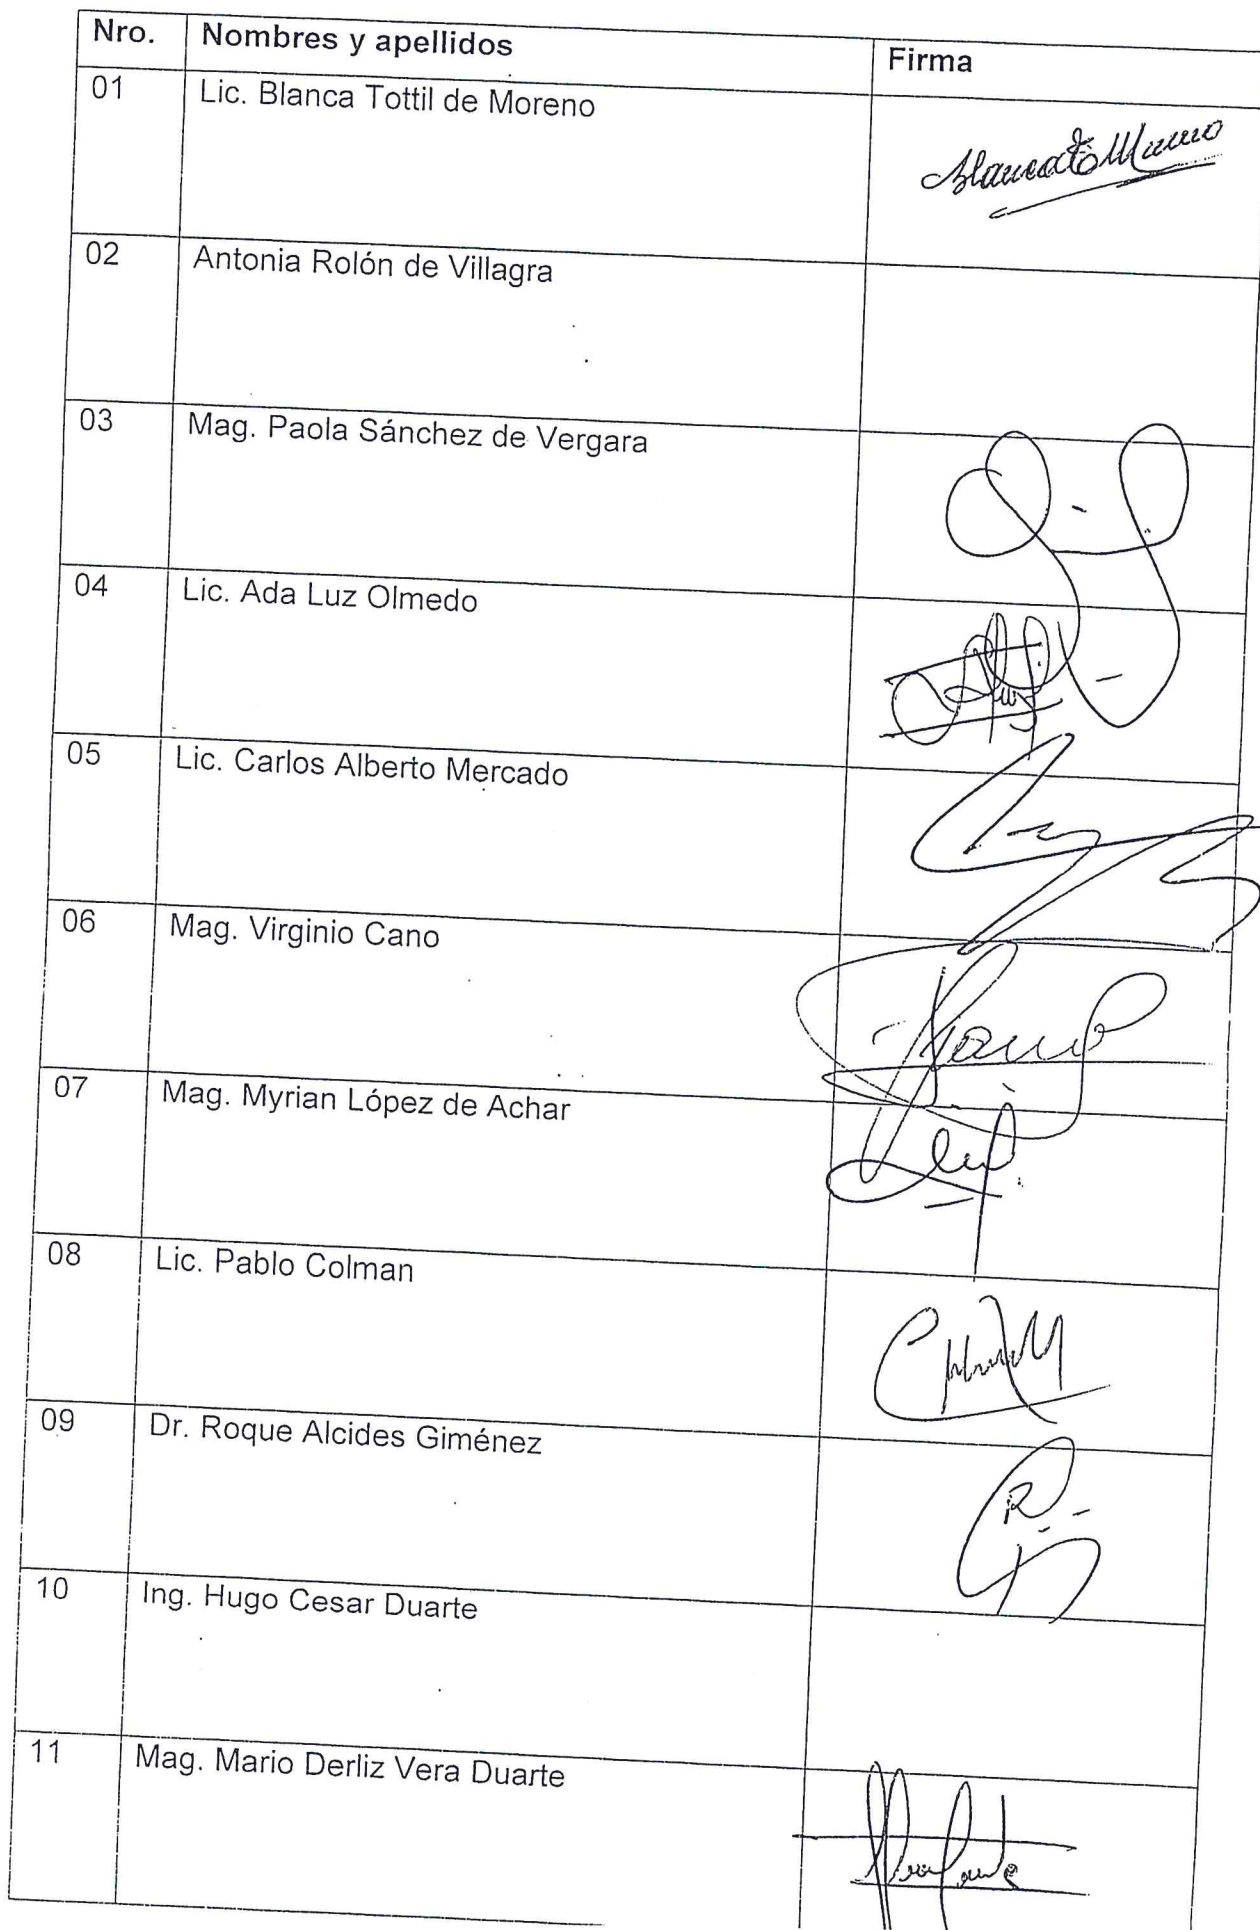 Nro. Nombres y apellidos Firma
01 Lic. Blanca Tottil de Moreno
02 Antonia Rolón de Villagra
03 Mag. Paola Sánchez de Vergara
04 Lic. Ada Luz Olmedo
05 Lic. Carlos Alberto Mercado
06 Mag. Virginio Cano
07 Mag. Myrian López de Achar
08 Lic. Pablo Colman
09 Dr. Roque Alcides Giménez
10 Ing. Hugo Cesar Duarte
11 Mag. Mario Derliz Vera Duarte